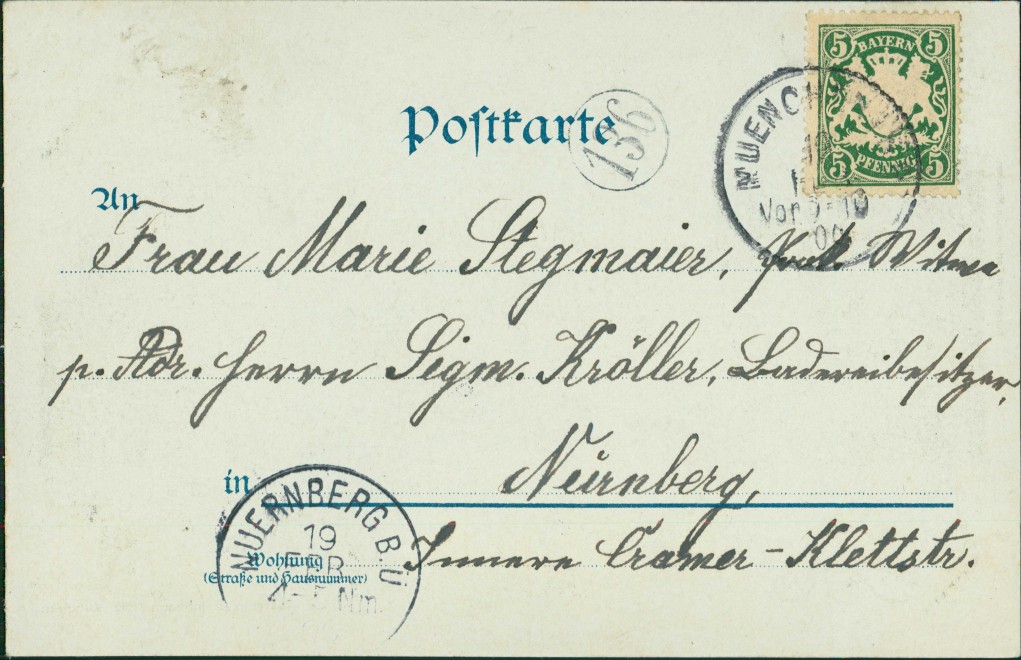 5 BAYERN 5
5 PFENNIG 5
MUENCHEN
19
Vor 9-10
00
Postkarte
136
An
Frau Marie Stegmaier, Witwe
p. Adr. Herrn Sigm. Kröller, Badereibesitzer,
in Nürnberg,
NUERNBERG B.Ü
19
FEB
4-5 Nm.
Innere Cramer-Klettstr.
Wohnung
(Straße und Hausnummer)